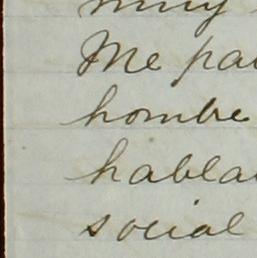 muy
Me pa
hombre
habla
social